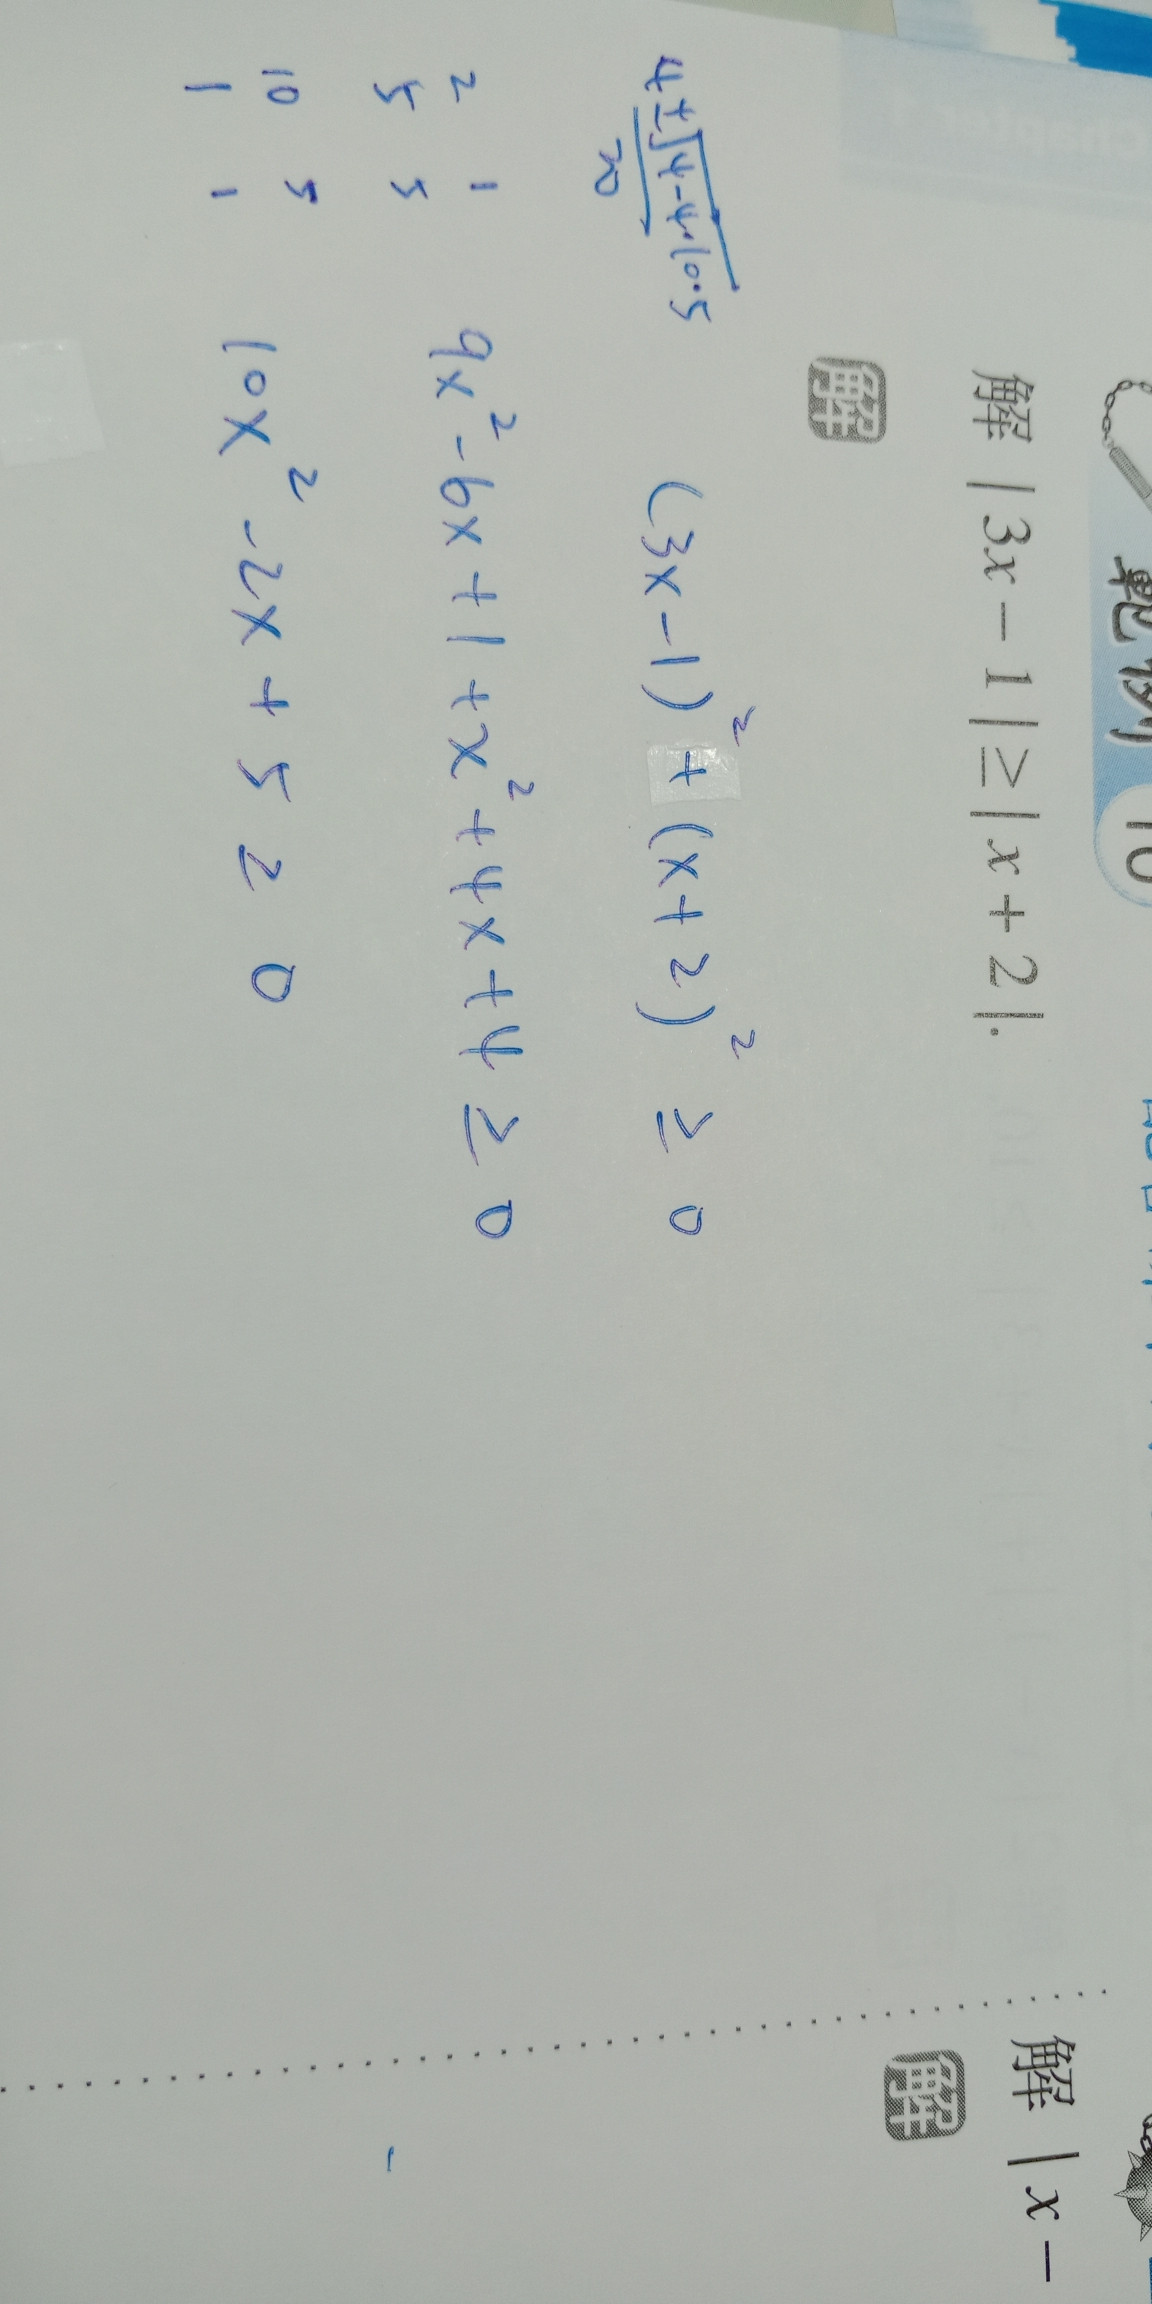 範例 10
解 | 3x − 1 | ≥ | x + 2 |.
解
(3x−1)² + (x+2)² ≥ 0
9x²−6x+1+x²+4x+4 ≥ 0
10x²−2x+5≥0
4±√4−4·10·5
20
2 1
5 5
10 5
1 1
解 | x −
解